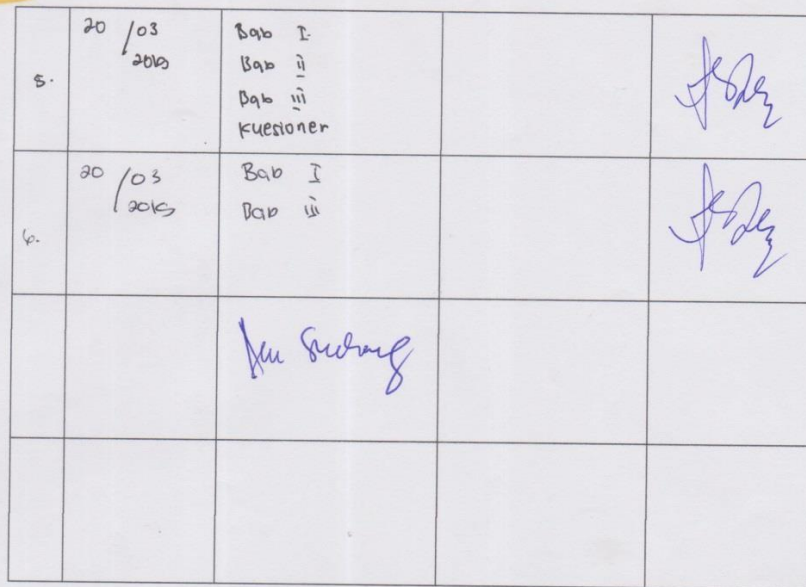 5.
20 /03
2019
Bab I
Bab ii
Bab iii
kuesioner
6.
20 /03
2019
Bab I
Bab iii